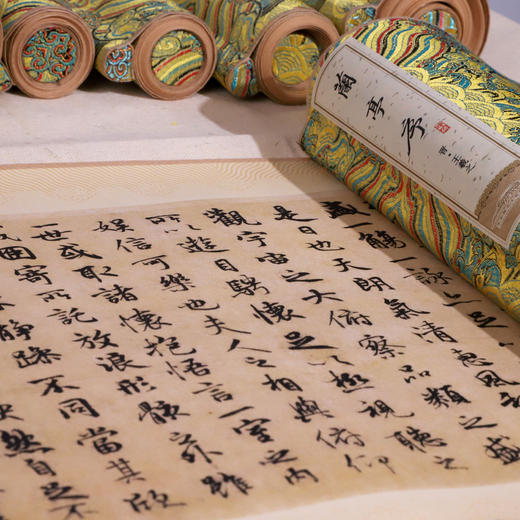 蘭亭序
晉·王羲之
盛一觴一詠
是日也天朗氣清惠風和
觀宇宙之大俯察品類之盛
所以遊目騁懷足以極視聽之
娛信可樂也夫人之相與俯仰
一世或取諸懷抱悟言一室之內
因寄所託放浪形骸之外雖
靜躁不同當其欣
快然自足不